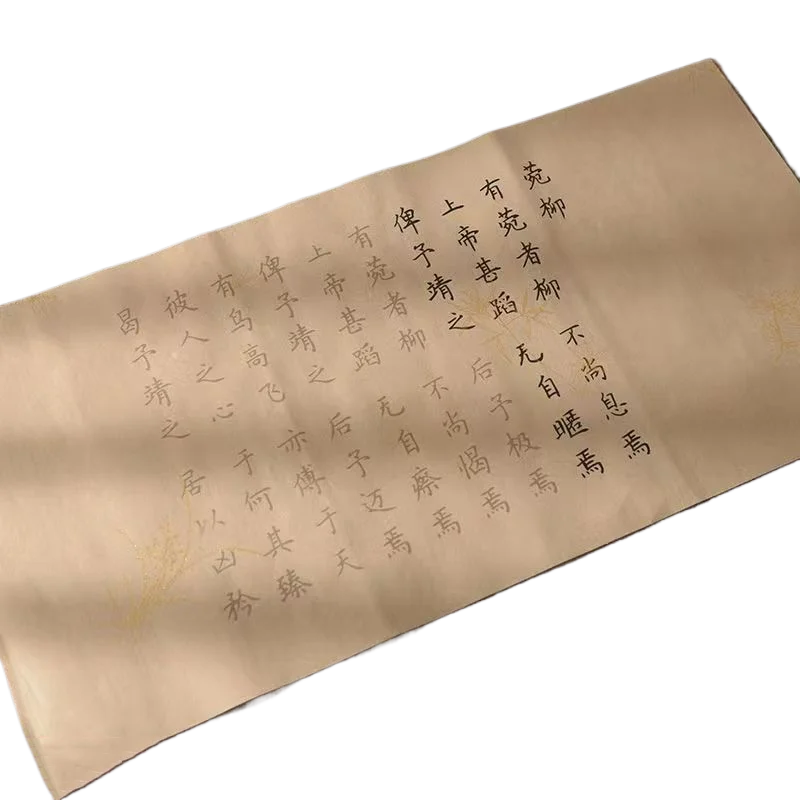 菀柳
有菀者柳 不尚息焉
上帝甚蹈 无自暱焉
俾予靖之 后予极焉
有菀者柳 不尚愒焉
上帝甚蹈 无自瘵焉
俾予靖之 后予迈焉
有鸟高飞 亦傅于天
彼人之心 于何其臻
曷予靖之 居以凶矜